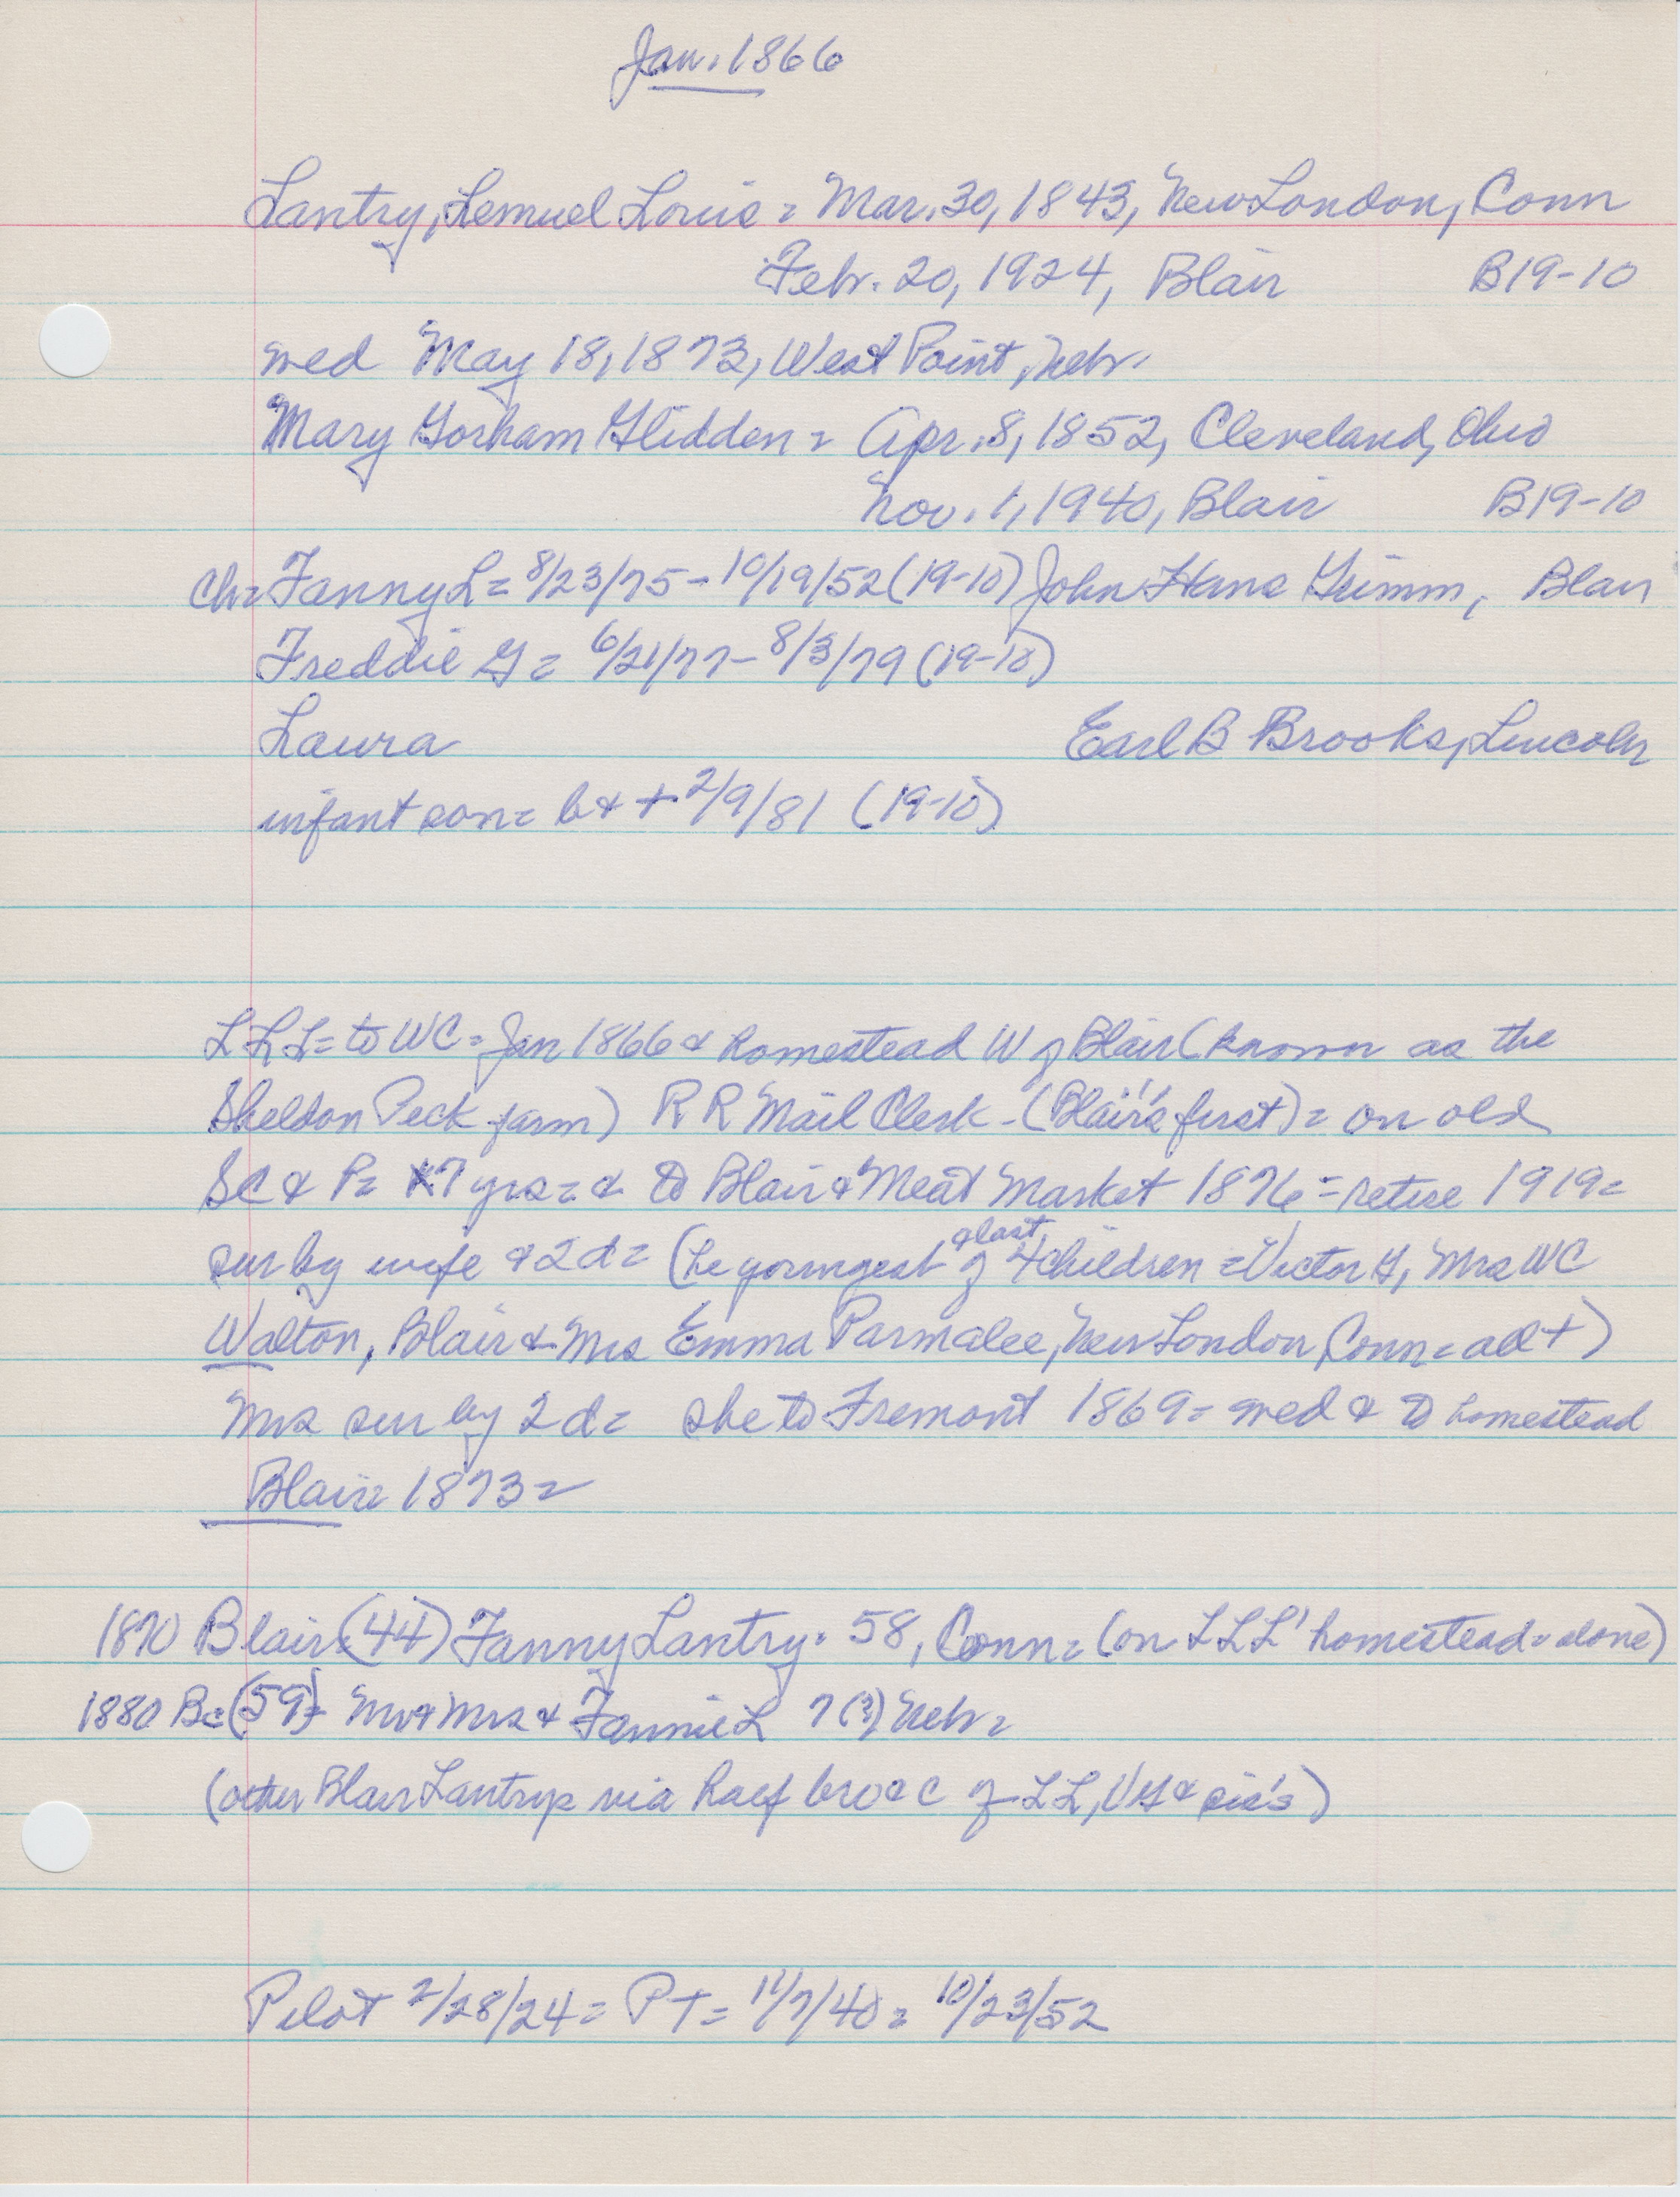 Jan. 1866
Lantry, Lemuel Louis = Mar. 30, 1843, New London, Conn
Febr. 20, 1924, Blair B19-10
wed May 18, 1873, West Point, Nebr.
Mary Gorham Glidden = Apr. 8, 1852, Cleveland, Ohio
Nov. 1, 1940, Blair B19-10
ch= Fanny L = 8/23/75 - 10/19/52 (19-10) John Hans Grimm, Blair
Freddie G = 6/21/77 - 8/3/79 (19-10)
Laura Earl B Brooks, Lincoln
infant son = b & + 2/9/81 (19-10)
LLL = to WC = Jan 1866 & homestead W of Blair (known as the
Sheldon Peck farm) RR Mail Clerk - (Blair's first) = on old
SC & P = 7 yrs = & to Blair & Meat Market 1876 = retire 1919 =
sur by wife & 2 d = (he youngest & last of 4 children = Victor G, Mrs WC
Walton, Blair & Mrs Emma Parmalee, New London, Conn = all +)
Mrs sur by 2 d = she to Fremont 1869 = wed & to homestead
Blair 1873 =
1870 Blair (44) Fanny Lantry = 58, Conn = (on LLL' homestead = alone)
1880 B = (59) = Mr & Mrs & Fannie L 7 (?) Nebr =
(other Blair Lantrys via half bro of LL, VG & sis's)
Pilot 2/28/24 = PT = 11/7/40 = 10/23/52